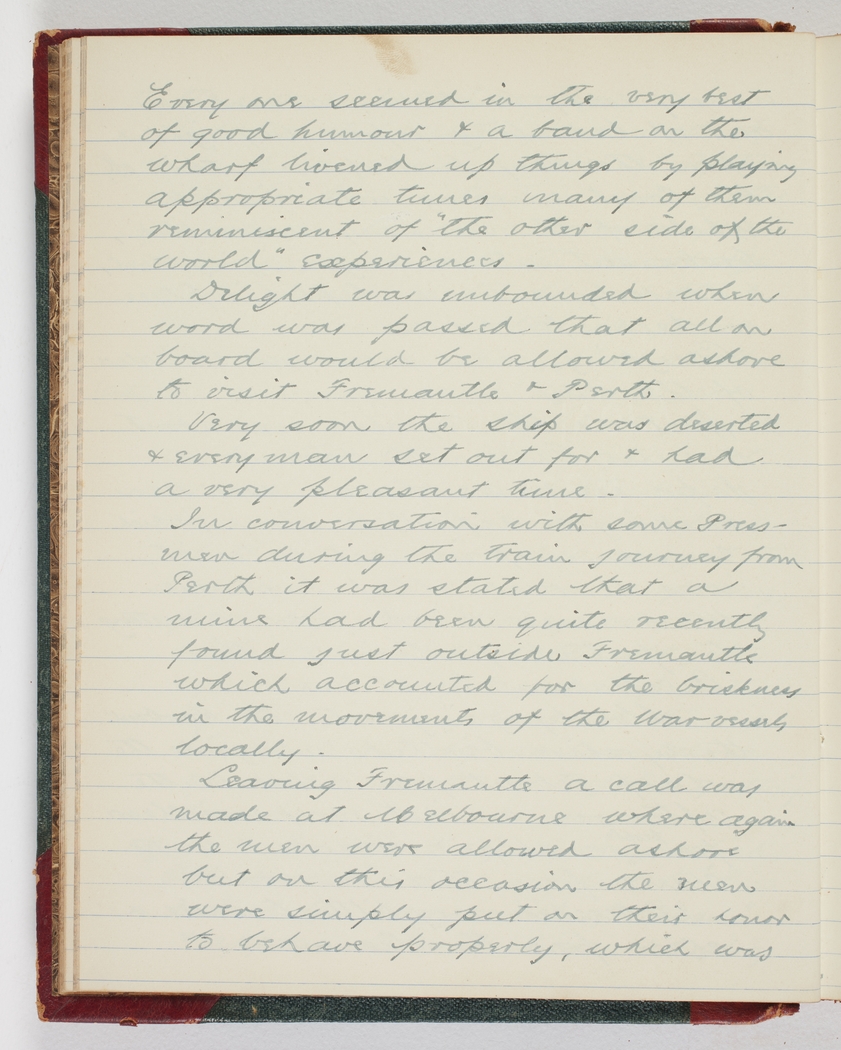 Every one seemed in the very best
of good humour & a band on the
wharf livened up things by playing
appropriate tunes many of them
reminiscent of "the other side of the
world" experiences.
Delight was unbounded when
word was passed that all on
board would be allowed ashore
to visit Fremantle & Perth.
Very soon the ship was deserted
& every man set out for & had
a very pleasant time.
In conversation with some Press-
men during the train journey from
Perth it was stated that a
mine had been quite recently
found just outside Fremantle
which accounted for the briskness
in the movements of the War vessels
locally.
Leaving Fremantle a call was
made at Melbourne where again
the men were allowed ashore
but on this occasion the men
were simply put on their honor
to behave properly, which was